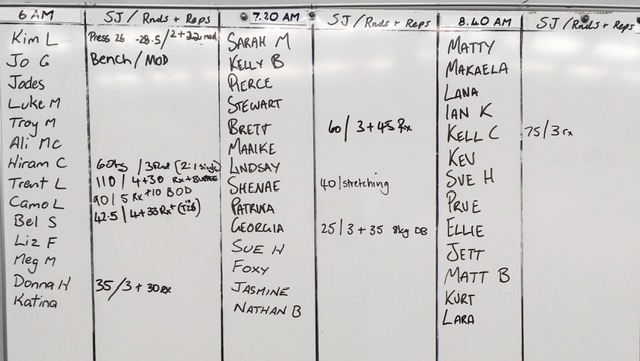 6 AM SJ / Rnds + Reps 7.20 AM SJ / Rnds + Reps 8.40 AM SJ / Rnds + Reps
Kim L Press 26 - 28.5 / 2 + 22 mod SARAH M MATTY
Jo G Bench / MOD KELLY B MAKAELA
Jades PIERCE LANA
Luke M STEWART IAN K
Troy M BRETT 60 / 3 + 45 Rx KELL C 75 / 3 rx
Ali Mc MAAIKE KEV
Hiram C 60kg / 3 Rnd (2:1 single) LINDSAY SUE H
Trent L 110 / 4 + 30 Rx + SHENAE 40 / stretching PRUE
Camo L 90 / 5 Rx + 10 BOD PATRINA ELLIE
Bel S 42.5 / 4 + 33 Rx + (T2B) GEORGIA 25 / 3 + 35 8kg DB JETT
Liz F SUE H MATT B
Meg M FOXY KURT
Donna H 35 / 3 + 30 rx JASMINE LARA
Katina NATHAN B